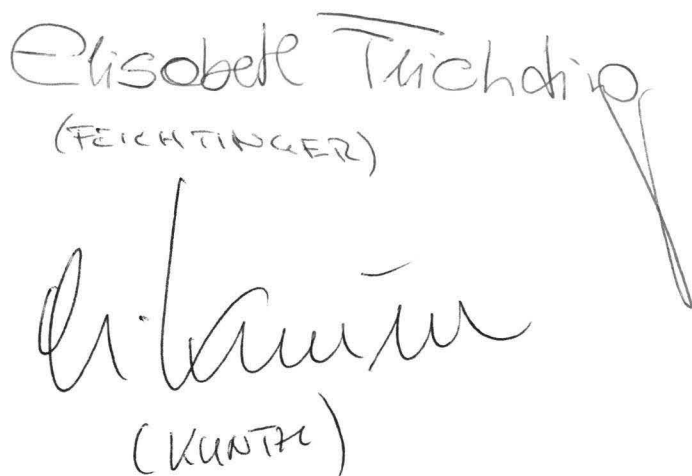 Elisabeth Feichting
(FEICHTINGER)
(KUNTZL)